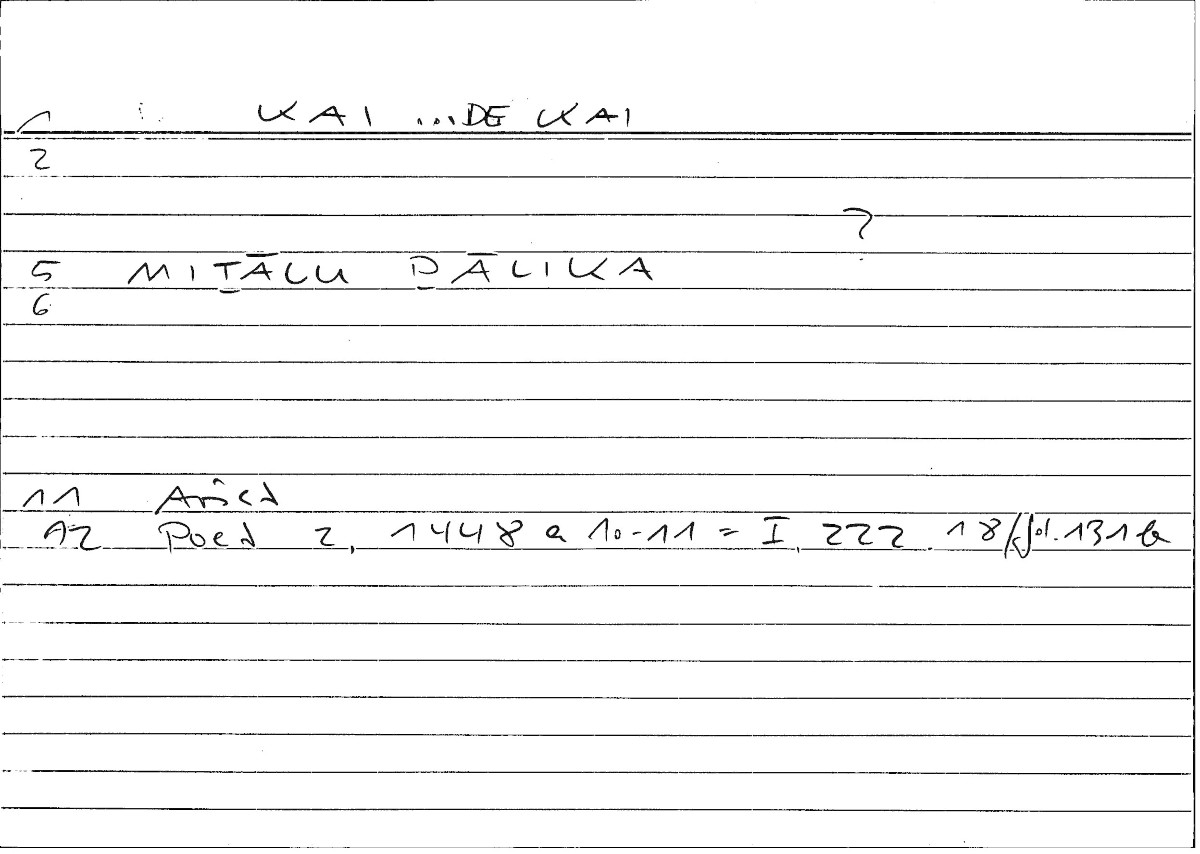 1 KAI ...DE KAI
2
?
5 MIṮĀLU ḎĀLIKA
6
11 Arist
12 Poet 2, 1448 a 10-11 = I, 222. 18/fol. 131b